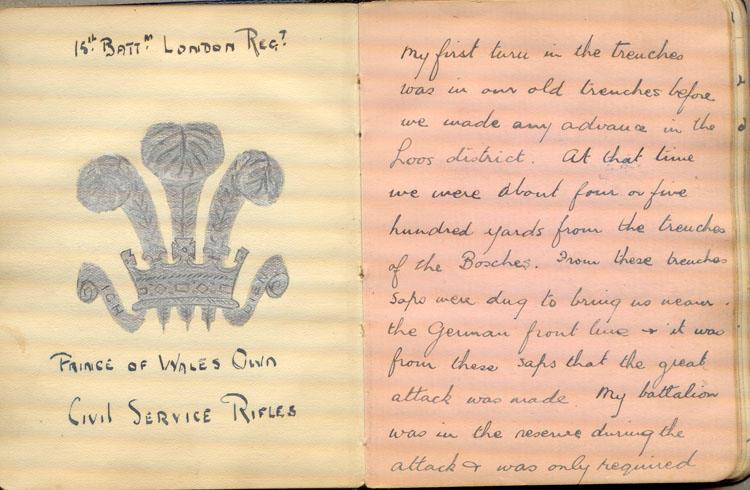 15th Battn London Regt
ICH DIEN
Prince of Wales Own
Civil Service Rifles
My first turn in the trenches
was in our old trenches before
we made any advance in the
Loos district. At that time
we were about four or five
hundred yards from the trenches
of the Bosches. From these trenches
saps were dug to bring us nearer
the German front line & it was
from these saps that the great
attack was made My battalion
was in the reserve during the
attack & was only required